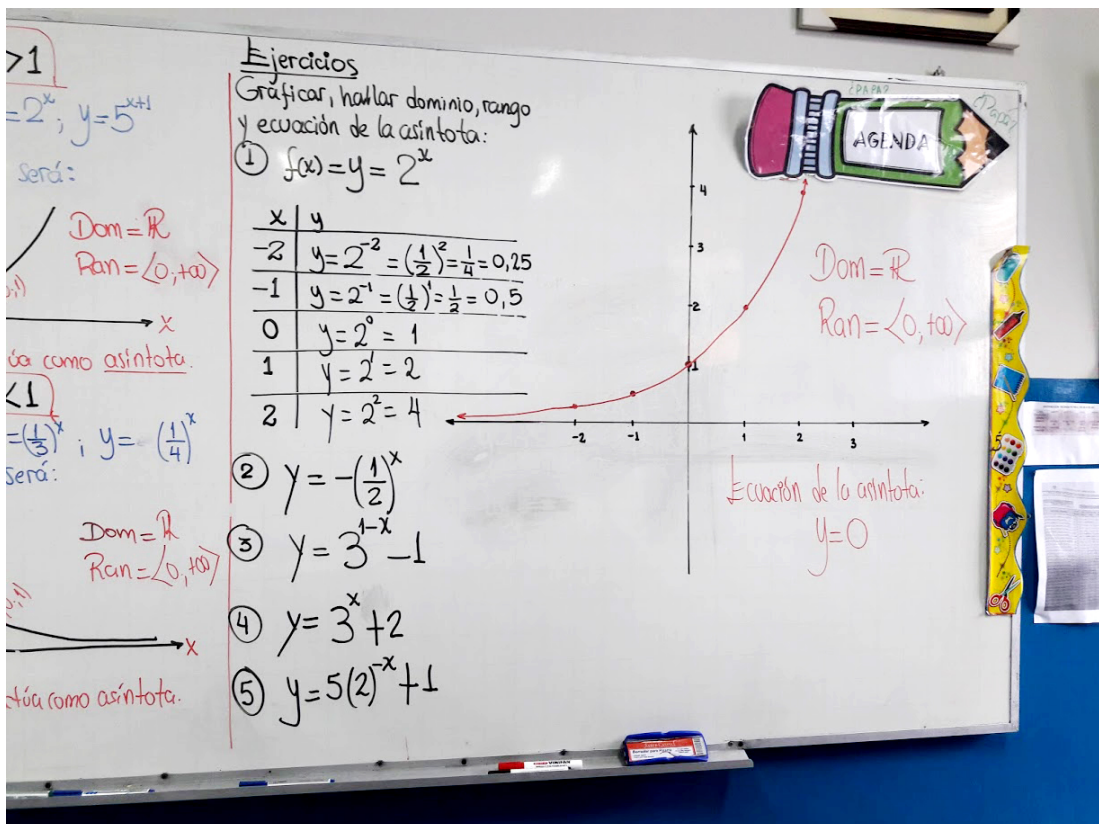 >1
=2^x; y=5^{x+1}
será:
Dom=ℝ
Ran=⟨0,+∞⟩
x
úa como asíntota.
<1
=(1/3)^x ; y=(1/4)^x
será:
Dom=ℝ
Ran=⟨0,+∞⟩
x
túa como asíntota.
Ejercicios
Gráficar, hallar dominio, rango
y ecuación de la asíntota:
① f(x)=y=2^x
x | y
-2 | y=2^{-2}=(1/2)^2=1/4=0,25
-1 | y=2^{-1}=(1/2)^1=1/2=0,5
0 | y=2^0=1
1 | y=2^1=2
2 | y=2^2=4
② y=-(1/2)^x
③ y=3^{1-x}-1
④ y=3^x+2
⑤ y=5(2)^{-x}+1
¿PAPA?
¿Papa?
AGENDA
4
3
2
1
-2 -1 1 2 3
Dom=ℝ
Ran=⟨0,+∞⟩
Ecuación de la asíntota:
y=0